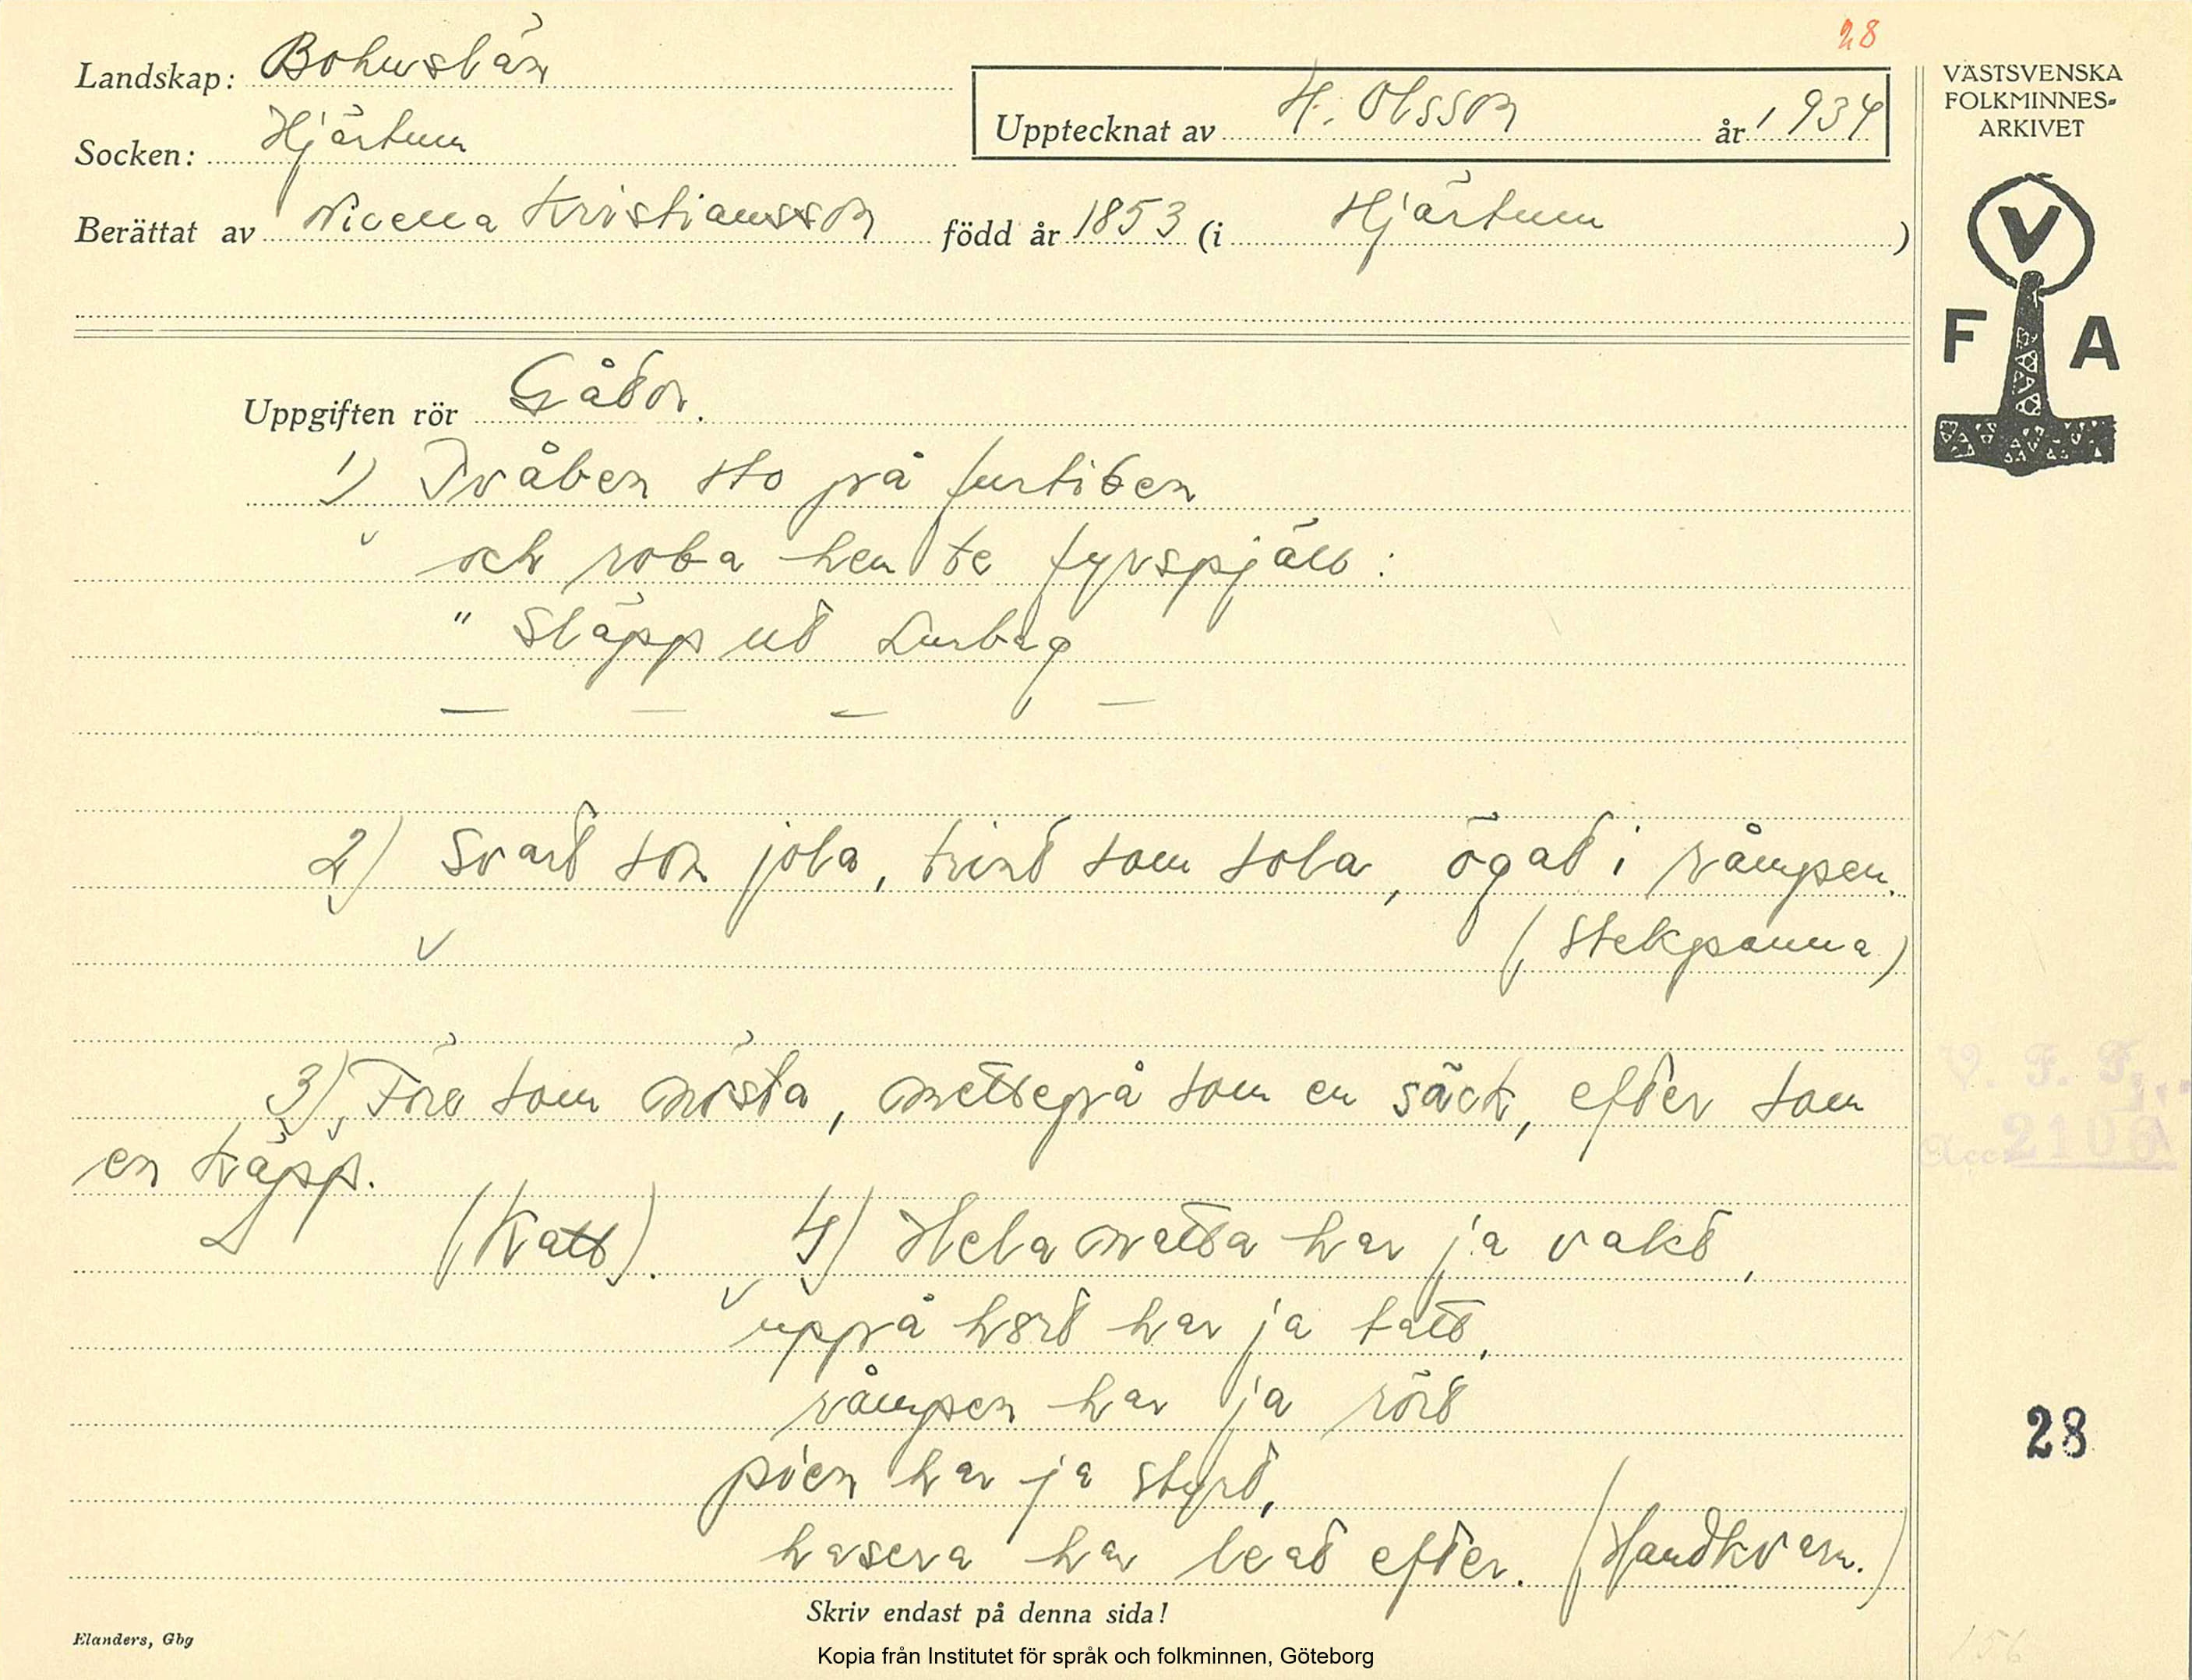 28
Landskap: Bohuslän
Socken: Hjärtum
Upptecknat av H. Olsson år 1934
Berättat av Kristiansson född år 1853 (i Hjärtum)
VÄSTSVENSKA
FOLKMINNES-
ARKIVET
V
F A
Uppgiften rör Gåtor.
1) sto på
och te
" Släpp ut
2) Svart som jola, trint som sola, ögat i råmpen.
(Stekpanna)
3) Före som nösta, mettepå som en säck, efter som
en käpp.
(Katt). 4) Hela natta har ja vakt,
uppå hört har ja tatt,
råmpen har ja rört
har ja styrt,
hasera har leat efter. (Handkvarn.)
V. F. T.
Acc 2106
28
Skriv endast på denna sida!
Elanders, Gbg
Kopia från Institutet för språk och folkminnen, Göteborg
156